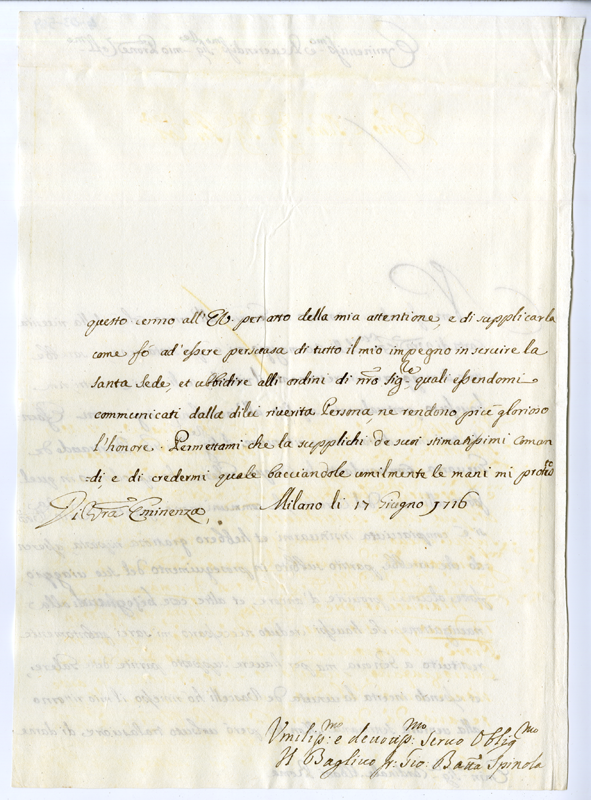 questo cenno all'EV. per atto della mia attentione, e di supplicarla
come fò ad'essere persuasa di tutto il mio impegno in servire la
santa sede, et ubbidire alli ordini di nrõ sig.re quali essendomi
communicati dalla dilei riverita Persona, ne rendono più glorioso
l'honore. Permettami che la supplichi de suoi stimatissimi coman
:di e di credermi quale bacciandole umilmente le mani mi
Di Vrã Eminenza, Milano li 17 Giugno 1716
Vmiliss:mo e devotiss:mo servo Obligmo
Il Baglivo fr: Gio: Battã Spinola